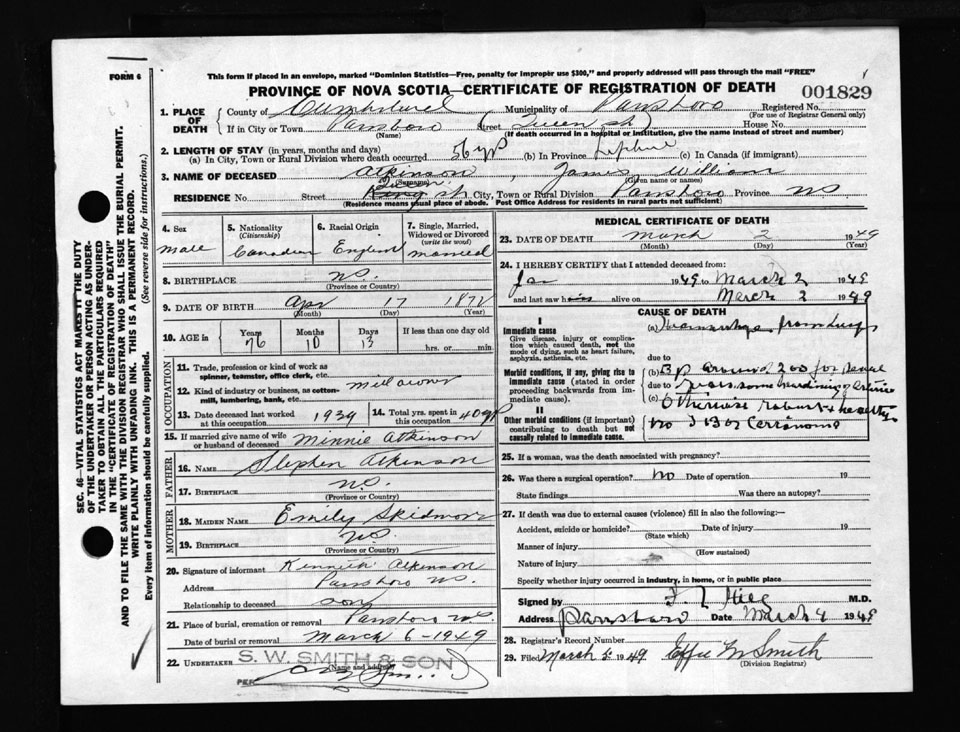 FORM 6
This form if placed in an envelope, marked "Dominion Statistics—Free, penalty for improper use $300," and properly addressed will pass through the mail "FREE"
PROVINCE OF NOVA SCOTIA—CERTIFICATE OF REGISTRATION OF DEATH
001829
1. PLACE OF DEATH
County of Cumberland Municipality of Parrsboro Registered No.
(For use of Registrar General only)
If in City or Town Parrsboro Street (Queen St) House No.
(Name) (If death occurred in a hospital or institution, give the name instead of street and number)
2. LENGTH OF STAY (in years, months and days)
(a) In City, Town or Rural Division where death occurred 56 yrs (b) In Province Lifetime (c) In Canada (if immigrant)
3. NAME OF DECEASED Atkinson, James William
(Surname) (Given name or names)
RESIDENCE No. Street King St City, Town or Rural Division Parrsboro Province NS
(Residence means usual place of abode. Post Office Address for residents in rural parts not sufficient)
4. Sex
Male
5. Nationality
(Citizenship)
Canadian
6. Racial Origin
English
7. Single, Married, Widowed or Divorced
(write the word)
Married
8. BIRTHPLACE N.S.
(Province or Country)
9. DATE OF BIRTH Apr 17 1872
(Month) (Day) (Year)
10. AGE in Years Months Days If less than one day old
76 10 13 hrs. or min.
OCCUPATION
11. Trade, profession or kind of work as spinner, teamster, office clerk, etc.
12. Kind of industry or business, as cotton-mill, lumbering, bank, etc. Mill owner
13. Date deceased last worked at this occupation 1939
14. Total yrs. spent in this occupation 40 yrs
15. If married give name of wife or husband of deceased Minnie Atkinson
FATHER
16. NAME Stephen Atkinson
17. BIRTHPLACE N.S.
(Province or Country)
MOTHER
18. MAIDEN NAME Emily Skidmore
19. BIRTHPLACE N.S.
(Province or Country)
20. Signature of informant Kenneth Atkinson
Address Parrsboro N.S.
Relationship to deceased son
21. Place of burial, cremation or removal Parrsboro N.S.
Date of burial or removal March 6-1949
22. UNDERTAKER S. W. SMITH & SON
(Name and address)
PER
MEDICAL CERTIFICATE OF DEATH
23. DATE OF DEATH March 2 1949
(Month) (Day) (Year)
24. I HEREBY CERTIFY that I attended deceased from:
Jan 1949 to March 2 1949
and last saw him alive on March 2 1949
CAUSE OF DEATH
I
Immediate cause
Give disease, injury or complication which caused death, not the mode of dying, such as heart failure, asphyxia, asthenia, etc.
(a) Hemorrhage from lungs
due to
Morbid conditions, if any, giving rise to immediate cause (stated in order proceeding backwards from immediate cause).
(b) BP around 200 for several
due to years some hardening arteries
(c) Otherwise robust & healthy
II
Other morbid conditions (if important) contributing to death but not causally related to immediate cause.
no T B or Carcinoma
25. If a woman, was the death associated with pregnancy?
26. Was there a surgical operation? No Date of operation 19
State findings Was there an autopsy?
27. If death was due to external causes (violence) fill in also the following:—
Accident, suicide or homicide? Date of injury 19
(State which)
Manner of injury
(How sustained)
Nature of injury
Specify whether injury occurred in industry, in home, or in public place
Signed by Hill M.D.
Address Parrsboro Date March 4 1949
28. Registrar's Record Number
29. Filed March 5 1949 Effie M Smith
(Division Registrar)
SEC. 46—VITAL STATISTICS ACT MAKES IT THE DUTY
OF THE UNDERTAKER OR PERSON ACTING AS UNDER-
TAKER TO OBTAIN ALL THE PARTICULARS REQUIRED
IN THE "CERTIFICATE OF REGISTRATION OF DEATH"
AND TO FILE THE SAME WITH THE DIVISION REGISTRAR WHO SHALL ISSUE THE BURIAL PERMIT.
WRITE PLAINLY WITH UNFADING INK. THIS IS A PERMANENT RECORD.
Every item of information should be carefully supplied. (See reverse side for instructions.)